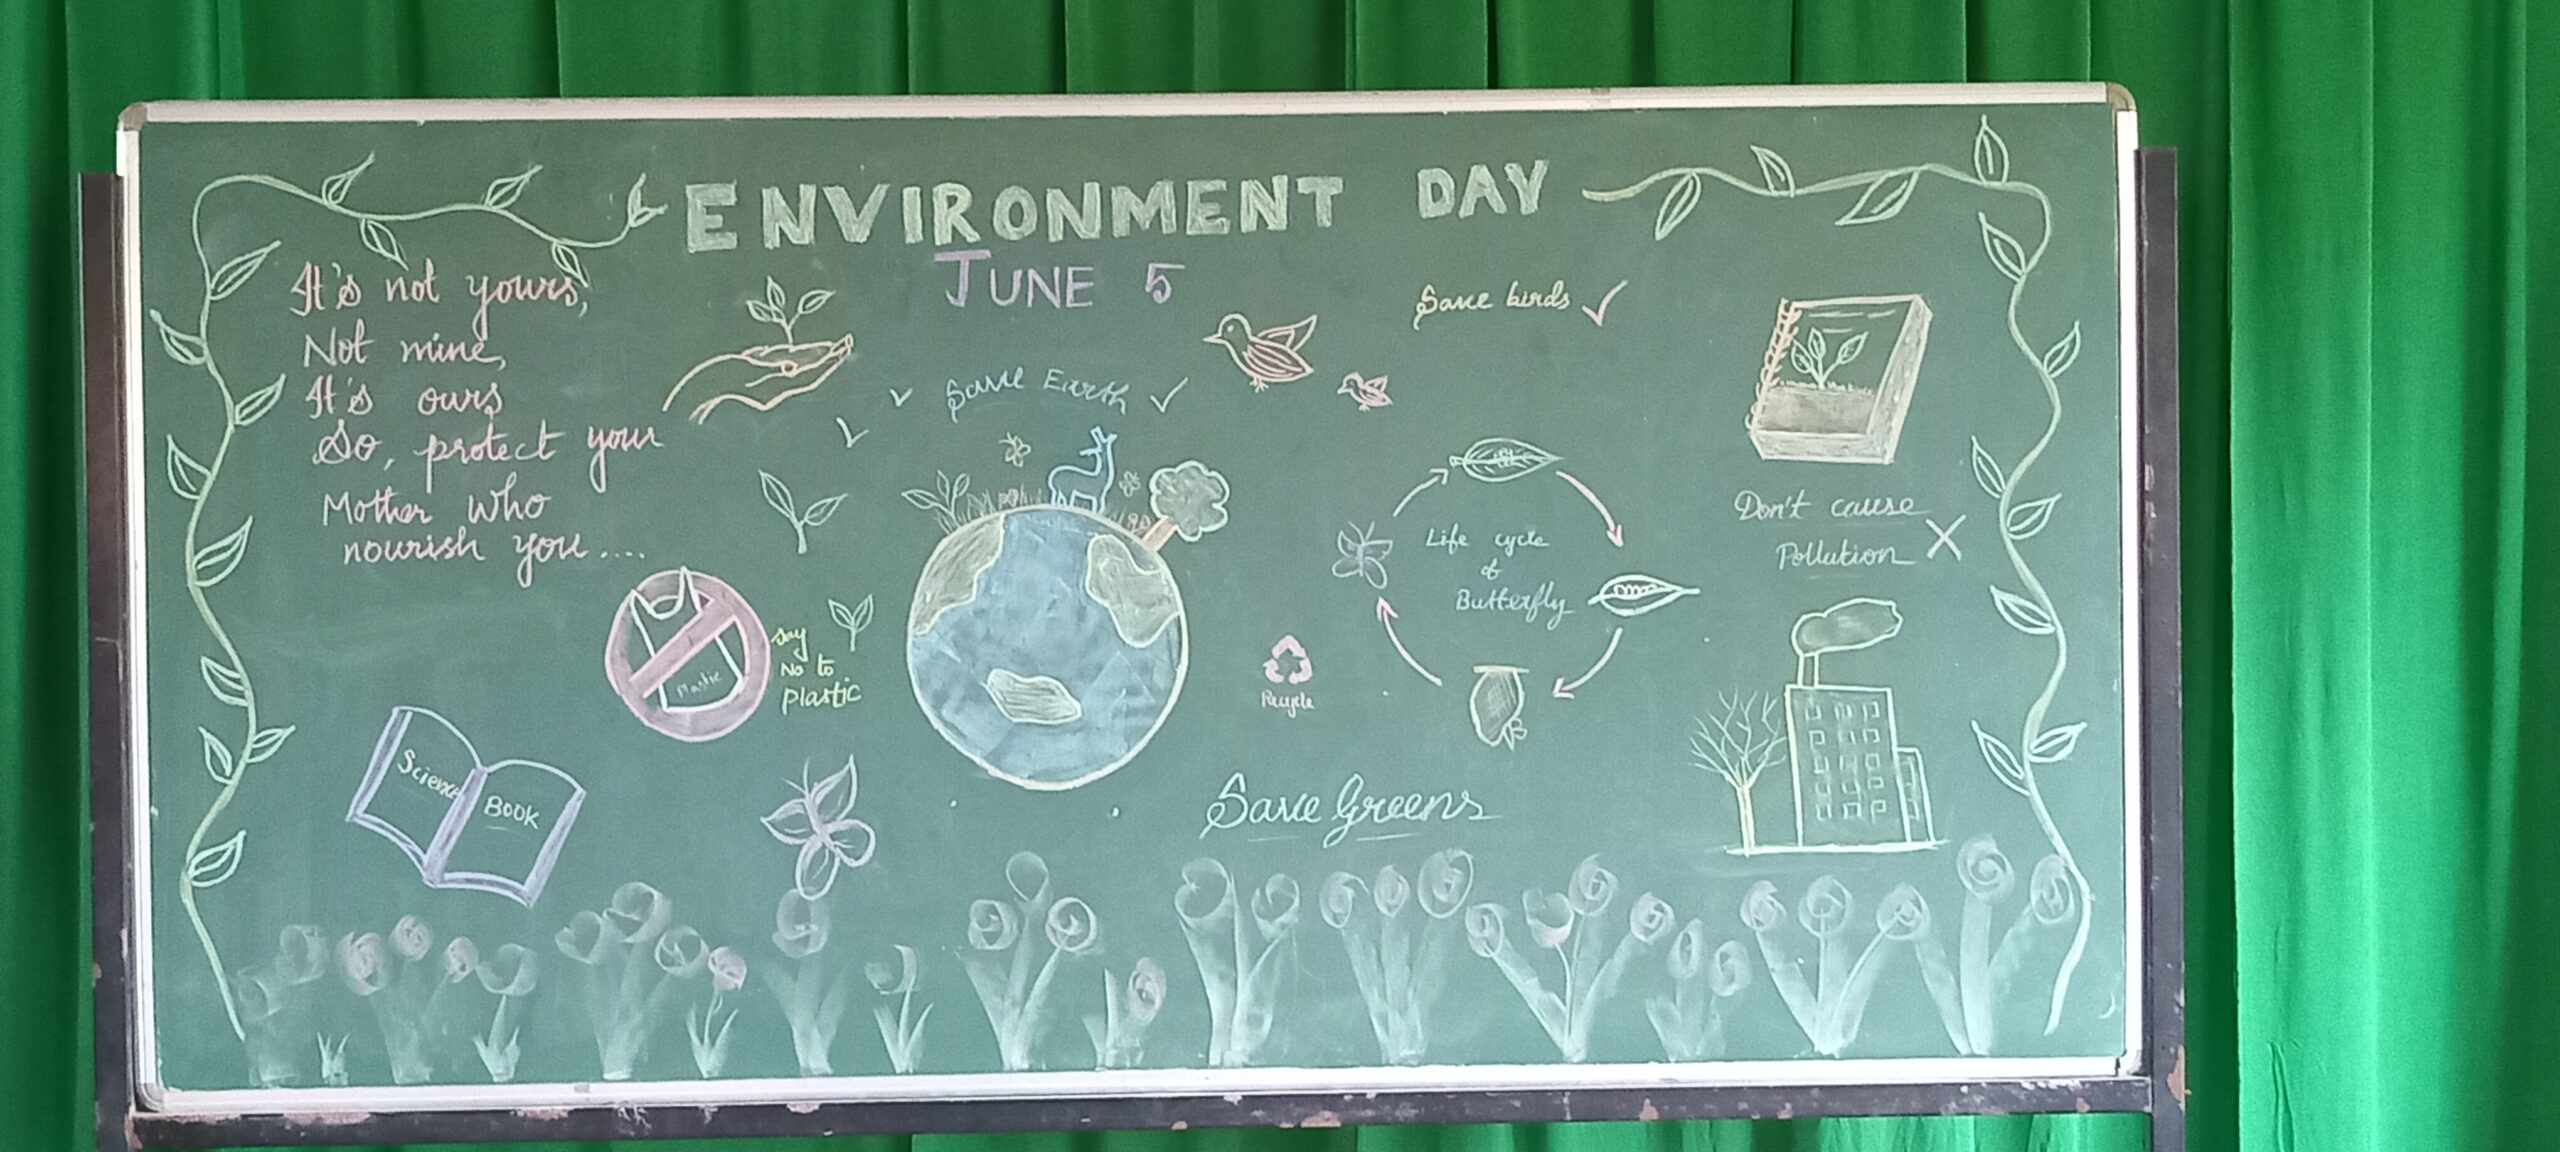 ENVIRONMENT DAY
JUNE 5
It's not yours,
Not mine,
It's ours
So, protect your
Mother who
nourish you....
Save Earth
Save birds
Don't cause
Pollution
Life cycle
of
Butterfly
Plastic
Say
No to
Plastic
Recycle
Science
BOOK
Save Greens